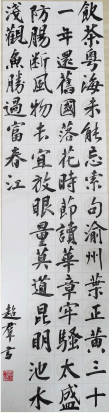 飲茶粵海未能忘索句渝州葉正黃三十
一年還舊國落花時節讀華章牢騷太盛
防腸斷風物长宜放眼量莫道昆明池水
淺觀魚勝過富春江
趙羣書